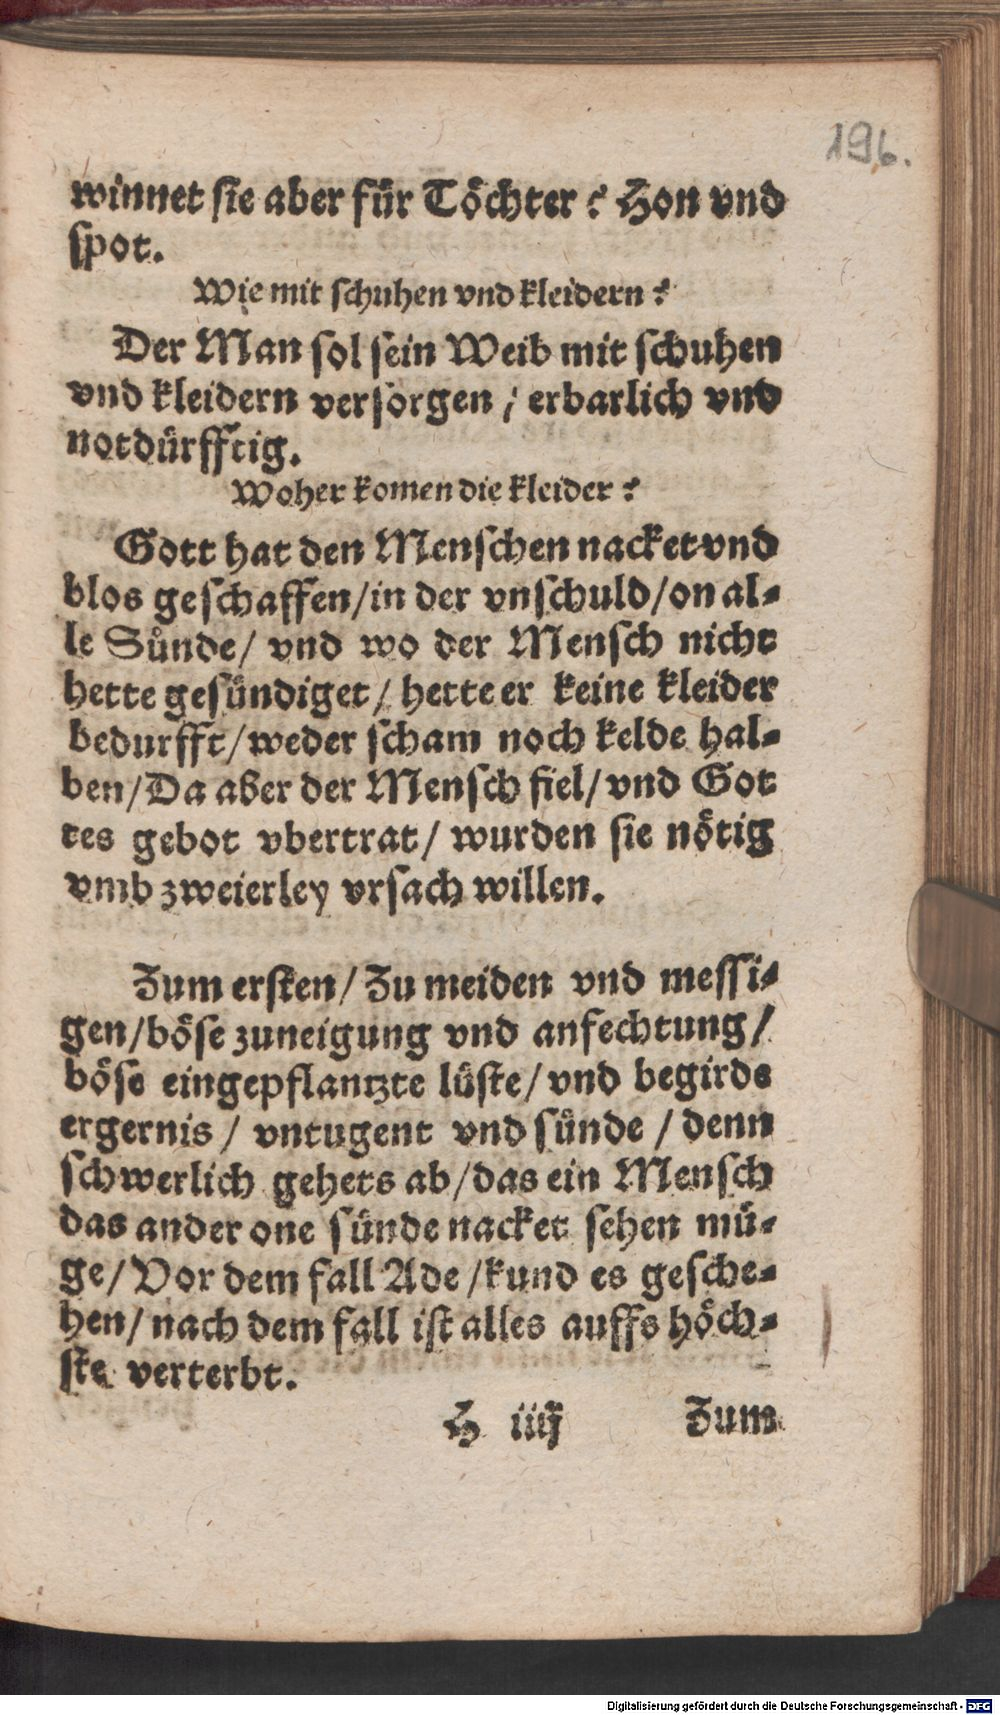 196.
winnet sie aber für Töchter? Hon vnd
spot.
Wie mit schuhen vnd kleidern?
Der Man sol sein Weib mit schuhen
vnd kleidern versorgen / erbarlich vnd
notdürfftig.
Woher komen die kleider?
Gott hat den Menschen nacket vnd
blos geschaffen/in der vnschuld/on al-
le Sünde/ vnd wo der Mensch nicht
hette gesündiget/ hette er keine kleider
bedurfft/weder scham noch kelde hal-
ben/Da aber der Mensch fiel/ vnd Got
tes gebot vbertrat/ wurden sie nötig
vmb zweierley vrsach willen.
Zum ersten/ Zu meiden vnd messi-
gen/böse zuneigung vnd anfechtung/
böse eingepflantzte lüste/ vnd begirde
ergernis / vntugent vnd sünde / denn
schwerlich gehets ab/das ein Mensch
das ander one sünde nacket sehen mü-
ge/ Vor dem fall Ade /kund es gesche-
hen/ nach dem fall ist alles auffs höch-
ste verterbt.
H iiij Zum
Digitalisierung gefördert durch die Deutsche Forschungsgemeinschaft - DFG